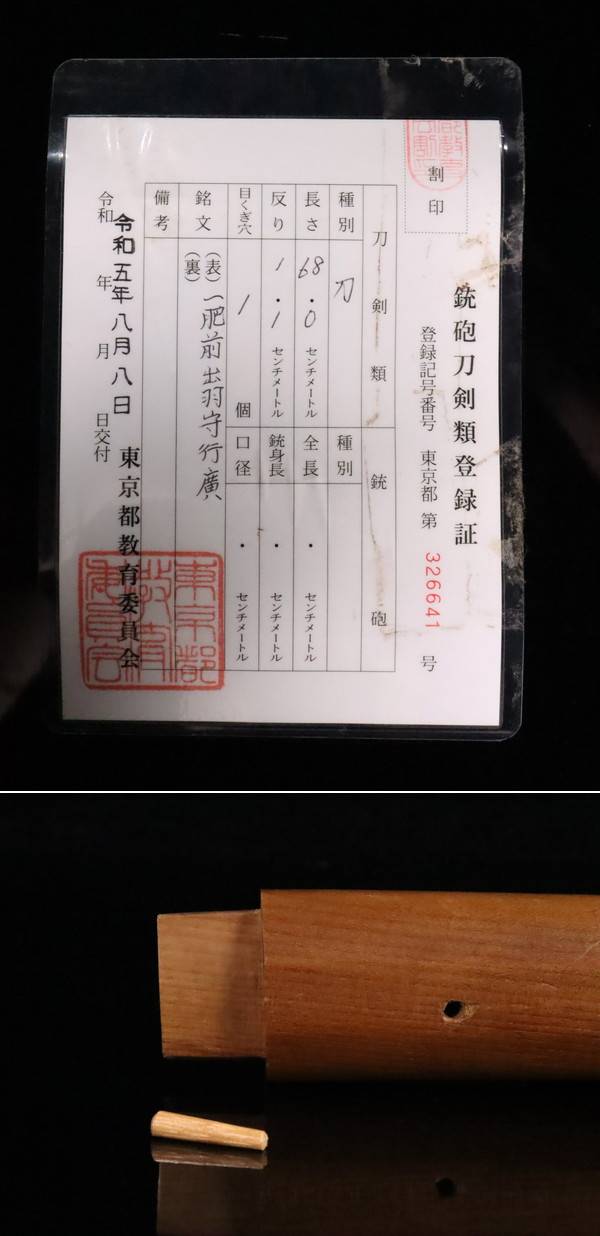 割印
銃砲刀剣類登録証
登録記号番号 東京都 第 326641 号
刀剣類
銃砲
種別 刀
種別
長さ 68.0 センチメートル
全長 . センチメートル
反り 1.1 センチメートル
銃身長 . センチメートル
目くぎ穴 1 個
口径 . センチメートル
銘文 (表) 一肥前出羽守行廣
(裏)
備考
令和 年 月 日交付
令和五年八月八日
東京都教育委員会
東京都教育委員会